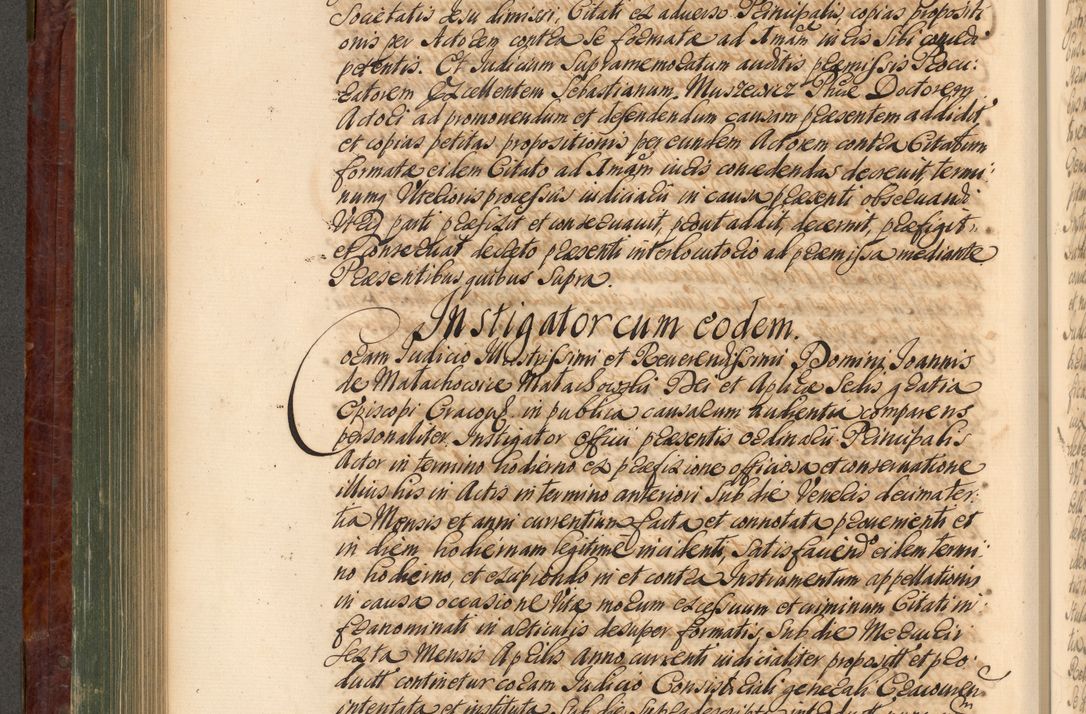 Societatis Jesu dimissi, Citati ex adverso Principalis copias propositi
onis per Actorem contra se formata ad Amām iuris sibi concedi
petentis. Et Judicium Supramemoratum auditis præmissis Procu:
ratorem Excellentem Sebastianum Muszewicz Phiæ Doctorem
Actori ad promovendum et defendendum causam præsentem addidit
et copias petitas propositionis per eundem Actorem contra Citatum
formata eidem Citato ad Amām iuris concedendas decrevit, termi:
num Ulterioris processus iudiciarii in causa præsenti observandi
parti præfixit et conservavit, prout addit, decernit, præfigit
et conservat decreto præsenti interlocutorio ad præmissa mediante
Præsentibus quibus Supra.
Instigator cum eodem.
Coram Judicio Illustrissimi et Reverendissimi Domini Joannis
de Małachowice Małachowski Dei et Aplicæ Sedis gratia
Episcopi Cracov. in publica causarum Audientia comparens
personaliter Instigator officii præsentis ordinarii Principalis
Actor in termino hodierno ex præfixione officiosa et conservatione
illius his in Actis in termino anteriori Sub die Veneris decima ter:
tia Mensis et anni currentium facta et connotata provenienti et
in diem hodiernam legitime incidenti, Satisfaciendo eidem termi:
no hodierno et excipiendo in et contra Instrumentum appellationis
in causa occasione Vitæ morum excessuum et criminum Citati in:
franominati in articulis desuper formatis, Sub die Mercurii
sexta Mensis Aprilis Anno currenti iudicialiter proposit et pro:
duct continetur coram Judicio Consistoriali generali Cracovien
intentata et instituta Sub die